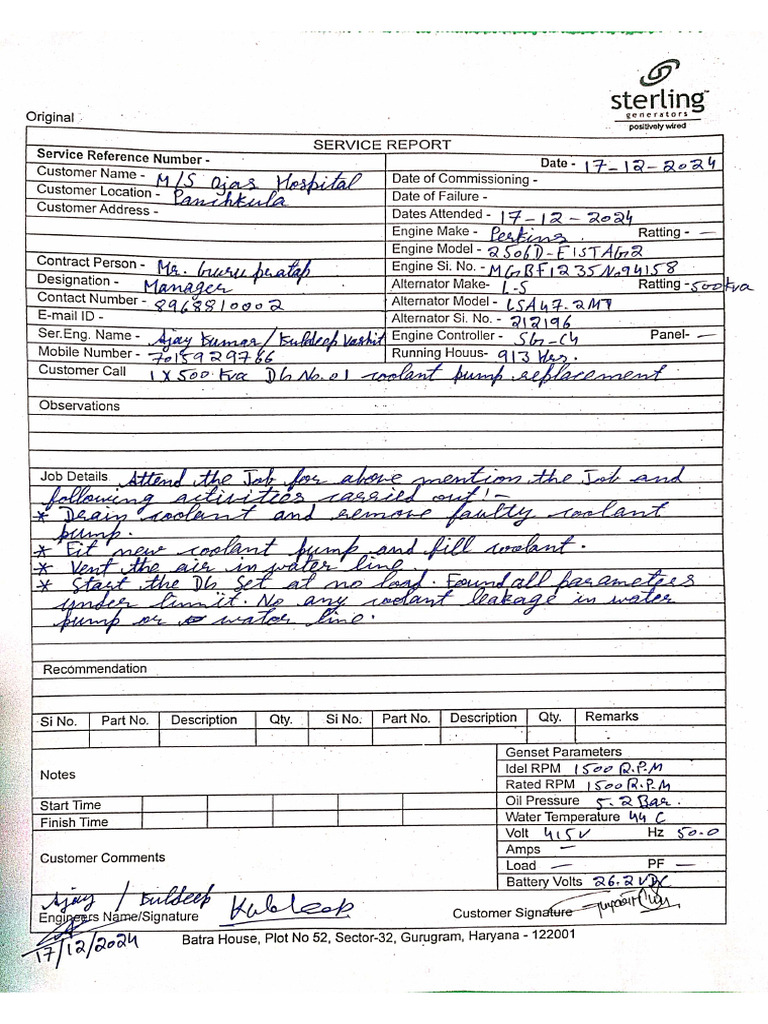 sterling
generators
positively wired
Original
SERVICE REPORT
Service Reference Number - Date - 17-12-2024
Customer Name - M/S Ojas Hospital Date of Commissioning -
Customer Location - Panchkula Date of Failure -
Customer Address - Dates Attended - 17-12-2024
Engine Make - Perkins. Ratting - —
Engine Model - 2506D-E15TAG2
Contract Person - Mr. Guru pratap Engine Si. No. - MGBF1235N094158
Designation - Manager Alternator Make- L-S Ratting - 500kva
Contact Number - 8968810002 Alternator Model - LSA47.2M7
E-mail ID - Alternator Si. No. - 212196
Ser.Eng. Name - Ajay Kumar/Kuldeep Vashit Engine Controller - SG-C4 Panel- —
Mobile Number - 7015929766 Running Houus- 913 Hrs.
Customer Call 1X500 Kva DG No.01 coolant pump replacement
Observations
Job Details Attend the Job for above mention the Job and
following activities carried out!-
* Drain coolant and remove faulty coolant
pump.
* Fit new coolant pump and fill coolant.
* Vent the air in water line.
* Start the DG Set at no load. Found all parameters
under limit. No any coolant leakage in water
pump or water line.
Recommendation
Si No. Part No. Description Qty. Si No. Part No. Description Qty. Remarks
Genset Parameters
Notes
Idel RPM 1500 R.P.M
Rated RPM 1500 R.P.M
Start Time Oil Pressure 5.2 Bar.
Finish Time Water Temperature 44 C
Volt 415V Hz 50.0
Customer Comments Amps —
Load — PF —
Battery Volts 26.2 VDC
Ajay / Kuldeep Kuldeep
Engineers Name/Signature Customer Signature
17/12/2024
Batra House, Plot No 52, Sector-32, Gurugram, Haryana - 122001